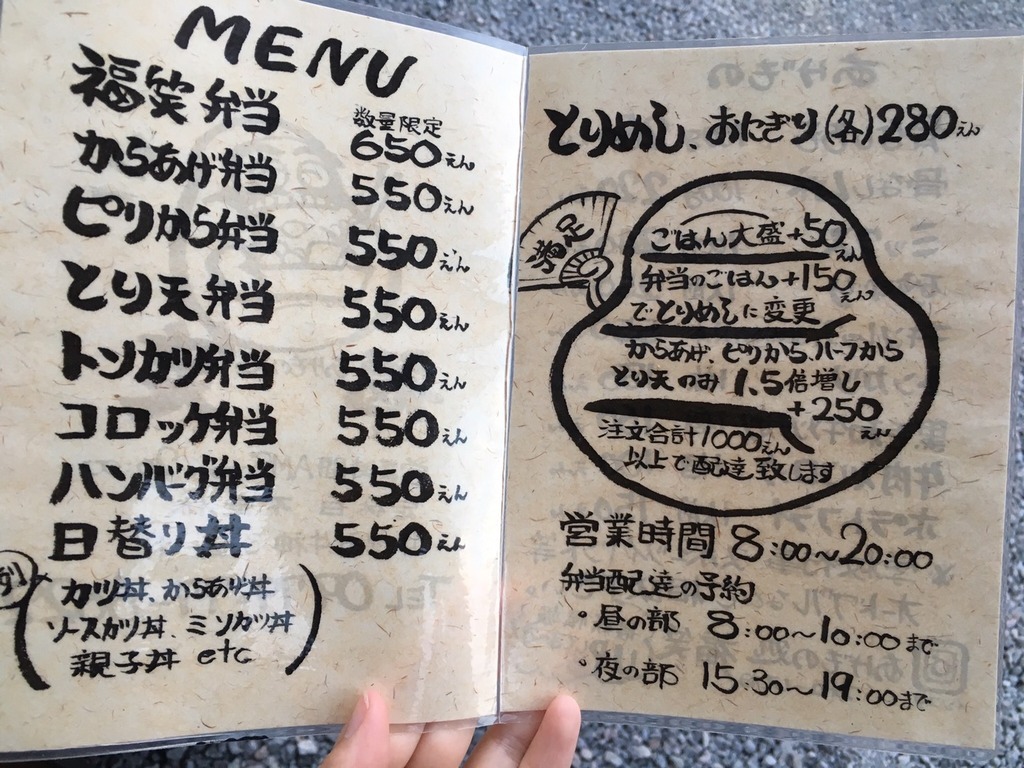 MENU
福笑弁当 数量限定 650えん
からあげ弁当 550えん
ピリから弁当 550えん
とり天弁当 550えん
トンカツ弁当 550えん
コロッケ弁当 550えん
ハンバーグ弁当 550えん
日替り丼 550えん
例
カツ丼、からあげ丼
ソースカツ丼、ミソカツ丼
親子丼 etc
とりめし、おにぎり(各)280えん
満足
ごはん大盛+50えん
弁当のごはん+150えん
でとりめしに変更
からあげ、ピリから、ハーフから
とり天のみ 1.5倍増し
+250えん
注文合計1000えん
以上で配達致します
営業時間 8:00〜20:00
弁当配達の予約
・昼の部 8:00〜10:00まで
・夜の部 15:30〜19:00まで